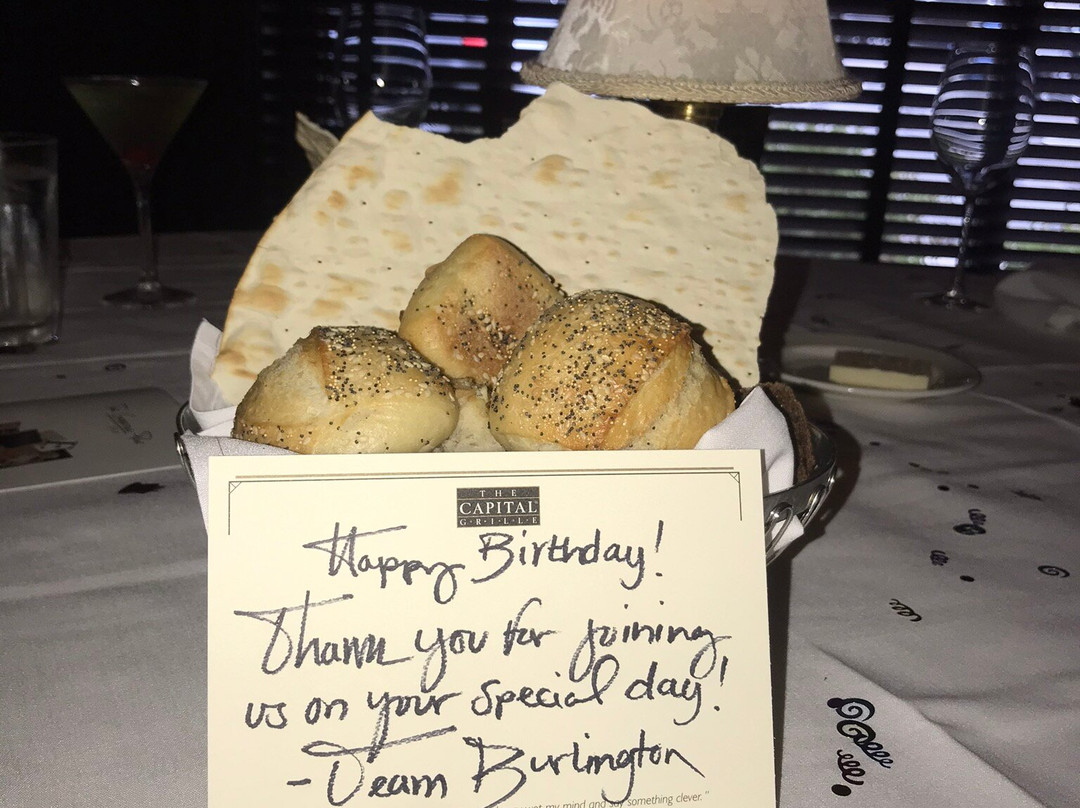 THE
CAPITAL
GRILLE
Happy Birthday!
Thank you for joining
us on your special day!
- Team Burlington
my mind and say something clever."